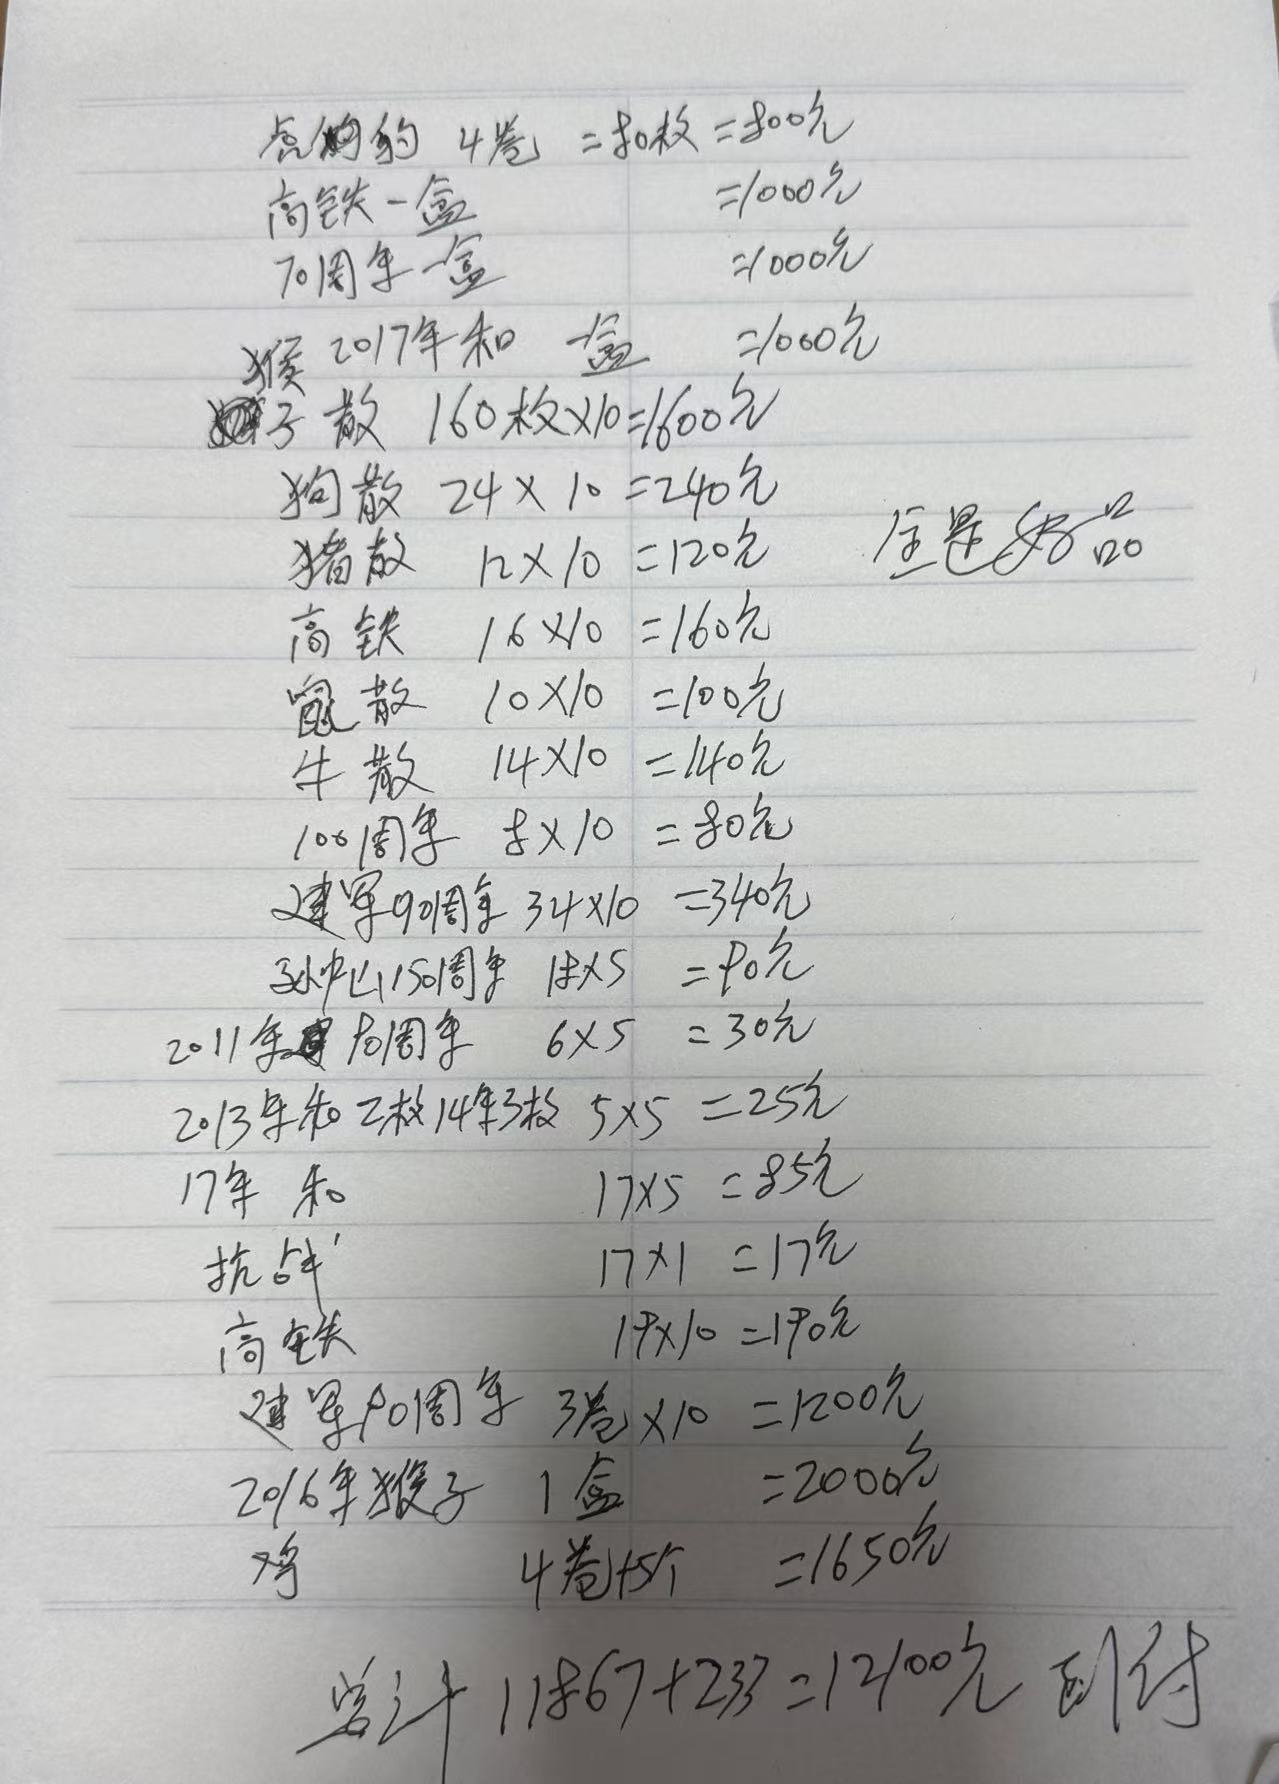 豹 4卷 =80枚=800元
高铁一盒 =1000元
70周年一盒 =1000元
2017年和 一盒 =1000元
猴子散 160枚×10=1600元
狗散 24×10=240元
猪散 12×10=120元
全是好品
高铁 16×10=160元
鼠散 10×10=100元
牛散 14×10=140元
100周年 8×10=80元
建军90周年 34×10=340元
孙中山150周年 18×5=90元
2011年 90周年 6×5=30元
2013年和2枚14年3枚 5×5=25元
17年 和 17×5=85元
抗战 17×1=17元
高铁 19×10=190元
建军90周年 3卷×10=1200元
2016年猴子 1盒 =2000元
鸡 4卷+5个 =1650元
总计 11867+233=12100元 到付